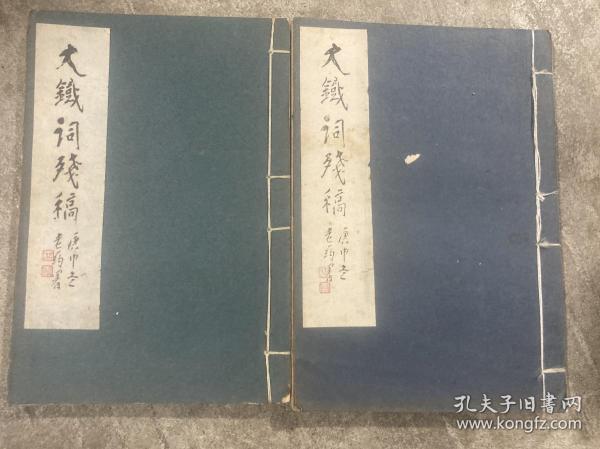 大鐵詞殘稿
庚申冬
署
大鐵詞殘稿
庚申冬
署
孔夫子旧书网
www.kongfz.com